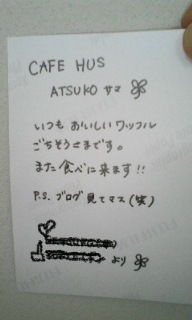 CAFE HUS
ATSUKO サマ
いつも おいしい ワッフル
ごちそうさまです。
また 食べに来ます!!
P.S. ブログ 見てマス(笑)
より